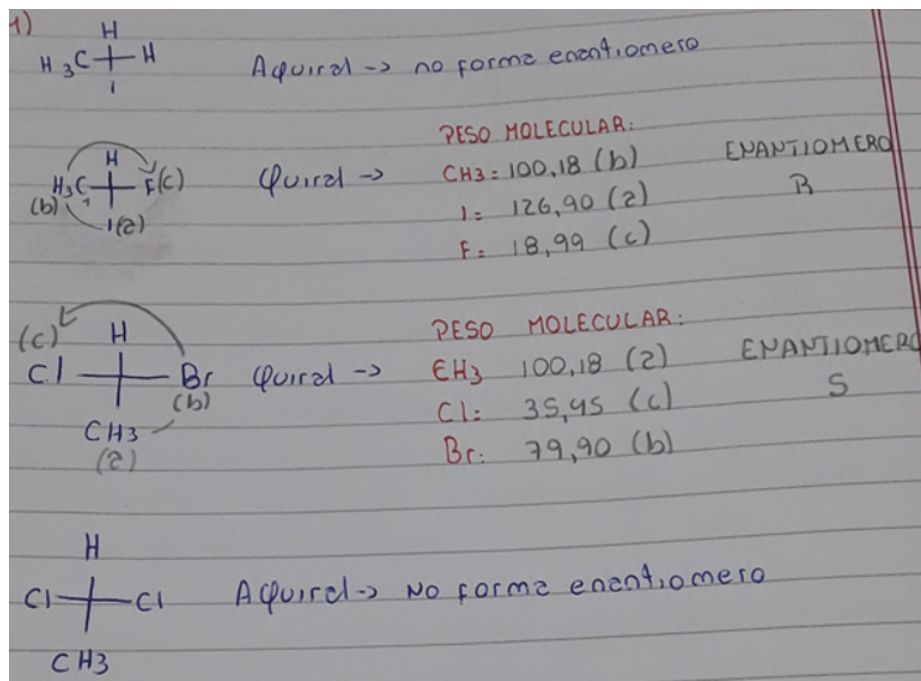 1)
H
H3C H
I
Aquiral -> no forma enantiomero
H
H3C F(c)
(b) 1
I(a)
Quiral ->
PESO MOLECULAR:
CH3: 100,18 (b)
I: 126,90 (a)
F: 18,99 (c)
ENANTIOMERO
R
(c)
H
Cl Br
(b)
CH3
(a)
Quiral ->
PESO MOLECULAR:
CH3 100,18 (a)
Cl: 35,45 (c)
Br: 79,90 (b)
ENANTIOMERO
S
H
Cl Cl
CH3
Aquiral -> No forma enantiomero